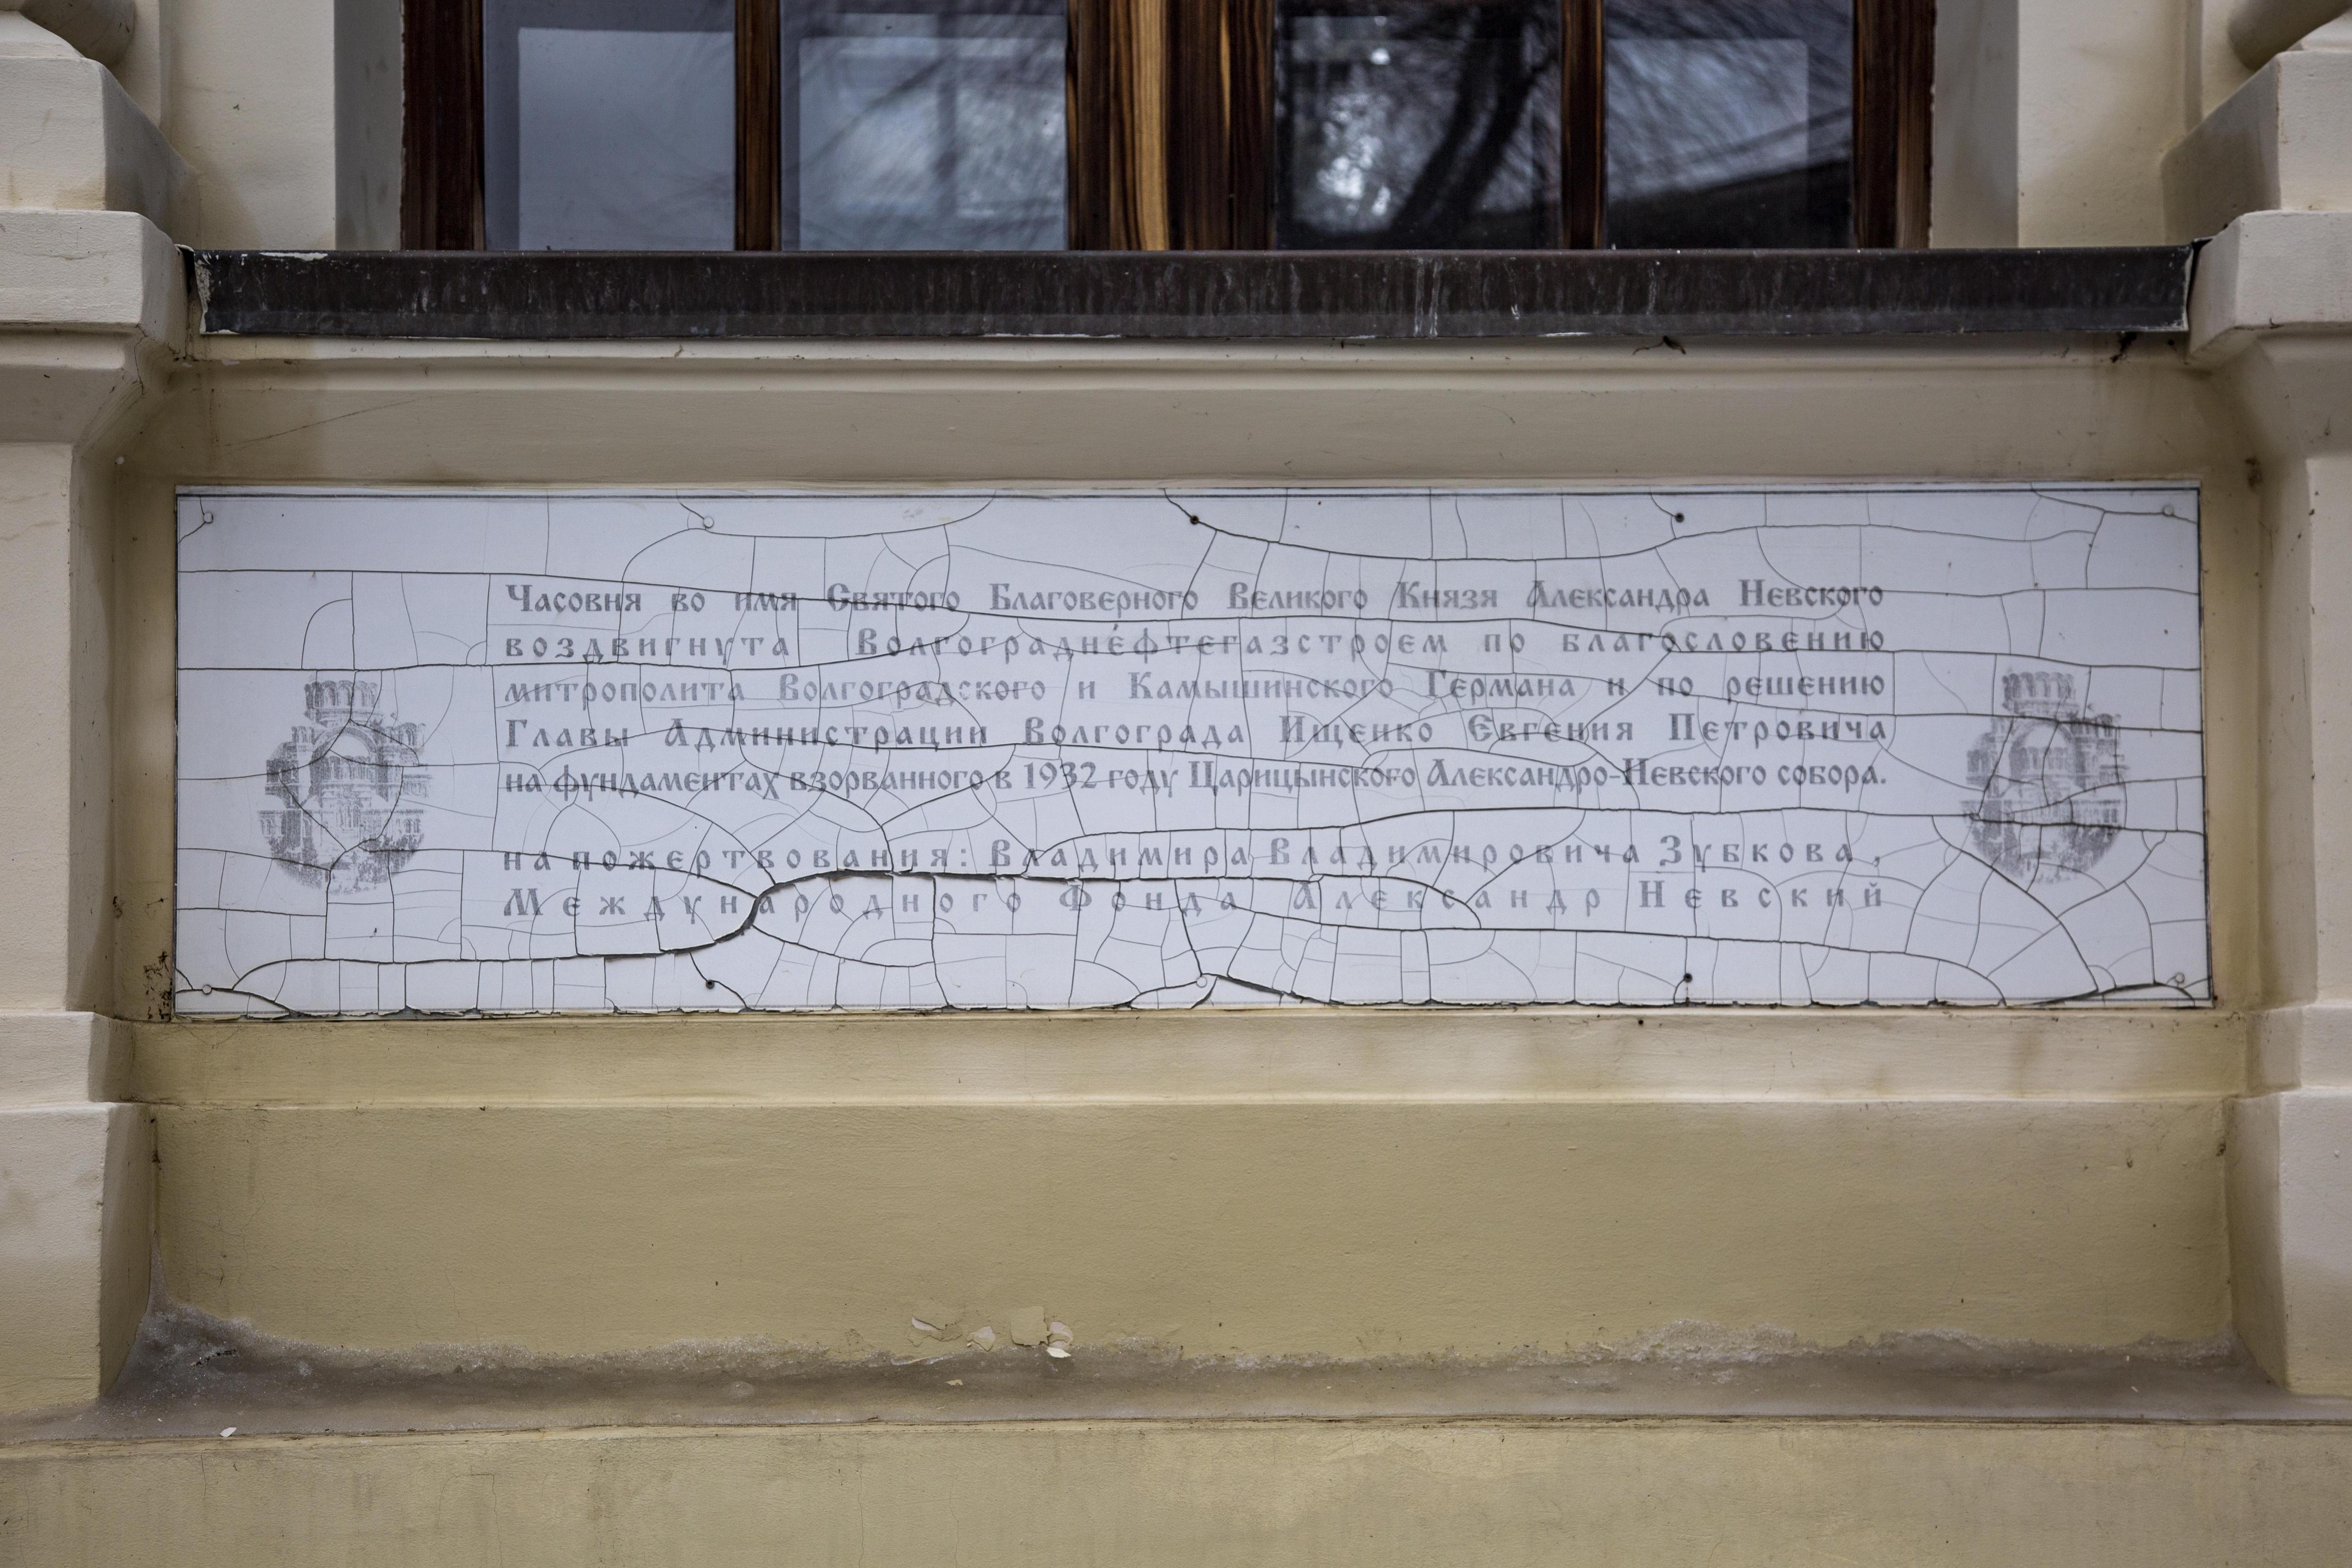 Часовня во имя Святого Благоверного Великого Князя Александра Невского
воздвигнута Волгограднефтегазстроем по благословению
митрополита Волгоградского и Камышинского Германа и по решению
Главы Администрации Волгограда Ищенко Евгения Петровича
на фундаментах взорванного в 1932 году Царицынского Александро-Невского собора.
на пожертвования: Владимира Владимировича Зубкова,
Международного Фонда Александр Невский